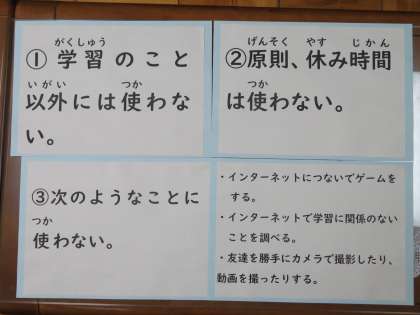 がくしゅう
①学習のこと
いがい つか
以外には使わな
い。
げんそく やす じかん
②原則、休み時間
つか
は使わない。
③次のようなことに
つか
使わない。
・インターネットにつないでゲームを
する。
・インターネットで学習に関係のない
ことを調べる。
・友達を勝手にカメラで撮影したり、
動画を撮ったりする。